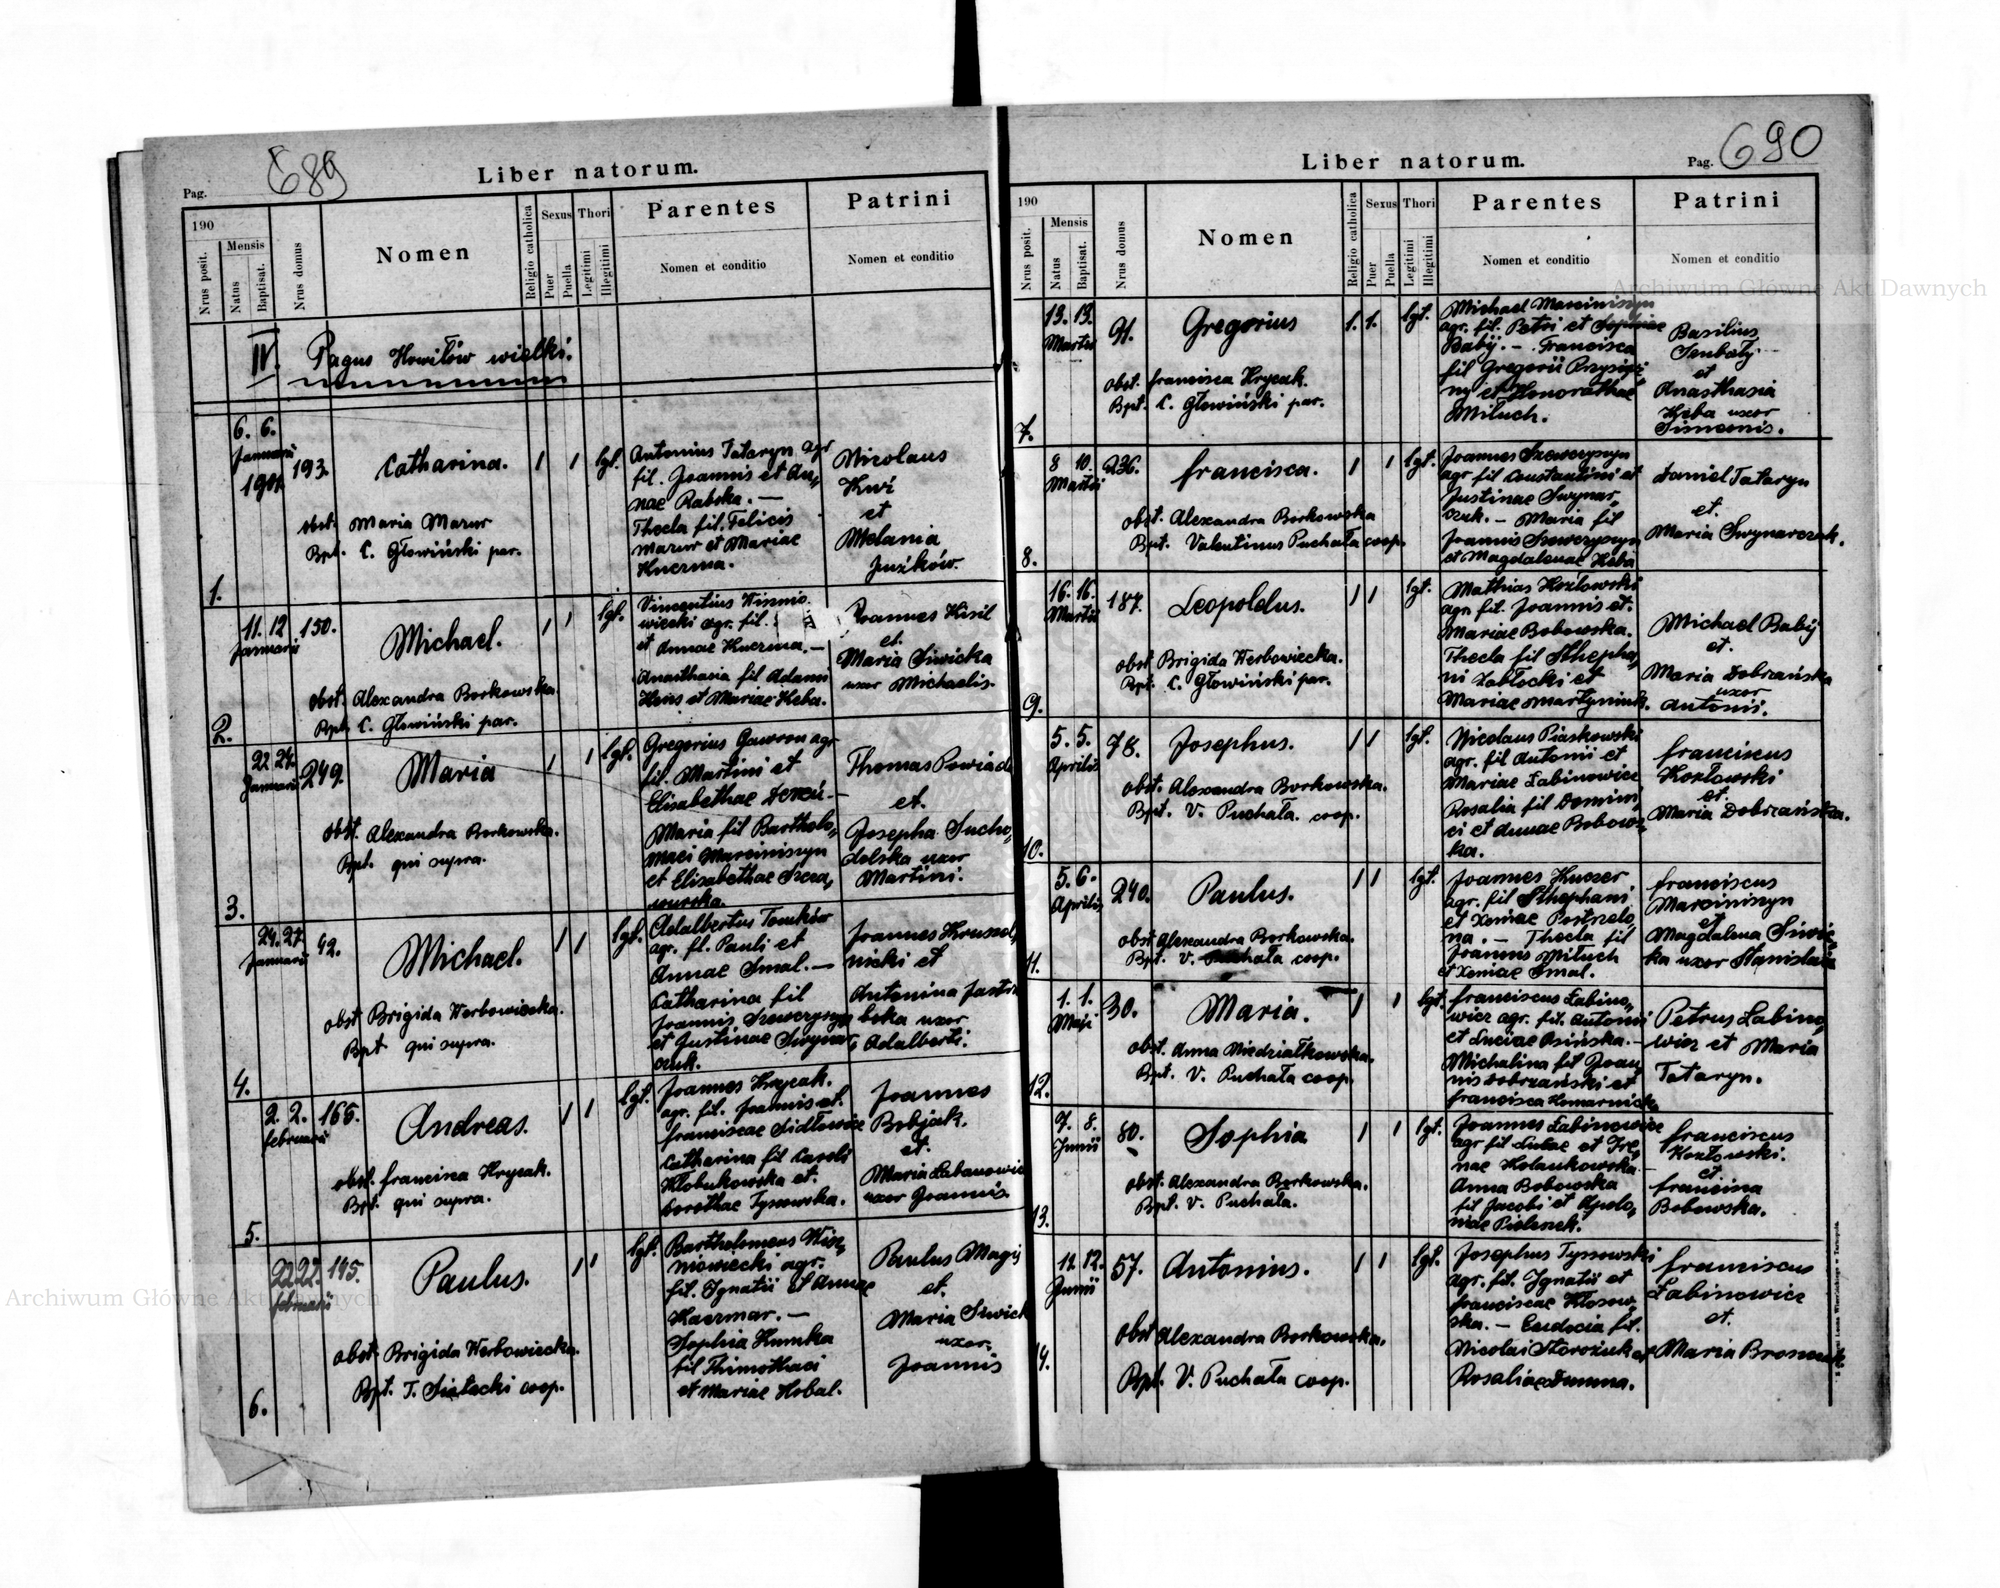 689
Liber natorum.
Pag.
190
Nrus posit.
Mensis
Natus
Baptisat.
Nrus domus
Nomen
Religio catholica
Sexus
Puer
Puella
Thori
Legitimi
Illegitimi
Parentes
Nomen et conditio
Patrini
Nomen et conditio
IV. Pagus Howiłów wielki.
1.
6. 6.
Januarii
193.
Catharina.
1 1 lgt.
obst. Maria Mazur
Bpt. C. Głowiński par.
Antonius Tataryn agr
fil. Joannis et An„
nae Rabska. —
Thecla fil. Felicis
Mazur et Mariae
Kuczma.
Nicolaus
et
Melania
Juźków.
2.
11. 12
Januarii
150.
Michael.
1 1 lgt.
obst. Alexandra Borkowska.
Bpt. C. Głowiński par.
Vincentius Wisnio
wiecki agr. fil.
et Annae Kuczma. —
Anasthasia fil Adami
et Mariae Heba.
Joannes Kisil
et.
Maria Siwicka
uxor Michaelis.
3.
22. 24.
Januarii
249.
Maria
1 1 lgt.
obst. Alexandra Borkowska.
Bpt. qui supra.
Gregorius Gawron agr
fil. Martini et
Elisabethae
Maria fil Bartholo„
maei Marciniszyn
et Elisabethae
Thomas
et.
Josepha Sucho„
dolska uxor
Martini.
4.
24. 27.
Januarii
42.
Michael.
1 1 lgt.
obst Brigida Werbowiecka.
Bpt. qui supra.
Adalbertus Tomków
agr. fl. Pauli et
Annae Smal. —
Catharina fil
Joannis Szewczyszyn
et Justinae Swynar
czuk.
Joannes
nicki et
Antonina
uxor
Adalberti.
5.
2. 2.
Februarii
165.
Andreas.
1 1 lgt.
obst. Francisca Hrycak.
Bpt. qui supra.
Joannes Hrycak.
agr. fil. Joannis et.
Franciscae
Catharina fil Caroli
Kłobukowska et.
Dorothae Tyssowska.
Joannes
Bobjak.
et.
Maria
uxor Joannis.
6.
22. 22.
Februarii
145.
Paulus.
1 1 lgt.
obst Brigida Werbowiecka.
Bpt. T. coop.
Bartholomeus Wisz„
niowiecki agr.
fil. Ignatii et Annae
Kaczmar. —
Sophia Humka
fil Thimothaei
et Mariae Hobal.
Paulus
et.
Maria
uxor
Joannis
Liber natorum.
Pag. 690
190
Nrus posit.
Mensis
Natus
Baptisat.
Nrus domus
Nomen
Religio catholica
Sexus
Puer
Puella
Thori
Legitimi
Illegitimi
Parentes
Nomen et conditio
Patrini
Nomen et conditio
7.
13. 13.
Martii
91.
Gregorius
1. 1. lgt.
obst. Francisca Hrycak.
Bpt. C. Głowiński par.
Michael Marciniszyn
agr. fil. Petri et Sophiae
Babij. — Francisca
fil Gregorii
ny et Honorathae
Miluch.
Basilius
et
Anasthasia
Heba uxor
Simeonis.
8.
8 10.
Martii
236.
Francisca.
1 1 lgt.
obst. Alexandra Borkowska
Bpt. Valentinus Puchała coop.
Joannes Szewczyszyn
agr fil Constantini et
Justinae Swynar„
czuk. — Maria fil
Joannis Szewczyszyn
et Magdalenae Heba
Daniel Tataryn
et.
Maria Swynarczuk.
9.
16. 16.
Martii
187.
Leopoldus.
1 1 lgt.
obst Brigida Werbowiecka.
Bpt. C. Głowiński par.
Mathias Kozłowski
agr. fil. Joannis et.
Mariae Bobowska.
Thecla fil Sthepha„
ni Zabłocki et
Mariae Martyniuk.
Michael Babij
et.
Maria Dobrzańska
uxor
Antonii.
10.
5. 5.
Aprilis
78.
Josephus.
1 1 lgt.
obst. Alexandra Borkowska.
Bpt. V. Puchała. coop.
Nicolaus Piaskowski
agr. fil Antonii et
Mariae Łabinowicz
Rosalia fil Domini„
ci et Annae Bobows„
ka.
Franciscus
Kozłowski
et.
Maria Dobrzańska.
11.
5. 6.
Aprilis
240.
Paulus.
1 1 lgt.
obst Alexandra Borkowska.
Bpt. V. Puchała coop.
Joannes Kuczer
agr. fil Sthephani
et Xeniae Postrzelo„
na. — Thecla fil
Joannis Miluch
et Xeniae Smal.
Franciscus
Marciniszyn
et
Magdalena Siwic„
ka uxor Stanislai
12.
1. 1.
Maji
30.
Maria.
1 1 lgt.
obst. Anna Niedziałkowska.
Bpt. V. Puchała coop.
Franciscus Łabino„
wicz agr. fil. Antonii
et Luciae Osińska. —
Michalina fil Joan„
nis Dobrzański et
Francisca
Petrus Łabino„
wicz et Maria
Tataryn.
13.
7. 8.
Junii
80.
Sophia
1 1 lgt.
obst. Alexandra Borkowska.
Bpt. V. Puchała.
Joannes Łabinowicz
agr fil Lucae et Ire„
nae Holaukowska
Anna Bobowska
fil Jacobi et Apolo„
niae
Franciscus
Kozłowski.
et.
Francina
Bobowska.
14.
12. 12.
Junii
57.
Antonius.
1 1 lgt.
obst Alexandra Borkowska.
Bpt. V. Puchała coop.
Josephus Tyssowski
agr. fil. Ignatii et
Franciscae Kłosow„
ska. — Eudocia fil.
Nicolai Storożuk et
Rosaliae Dumna.
Franciscus
Łabinowicz
et.
Maria
Archiwum Główne Akt Dawnych
Archiwum Główne Akt Dawnych